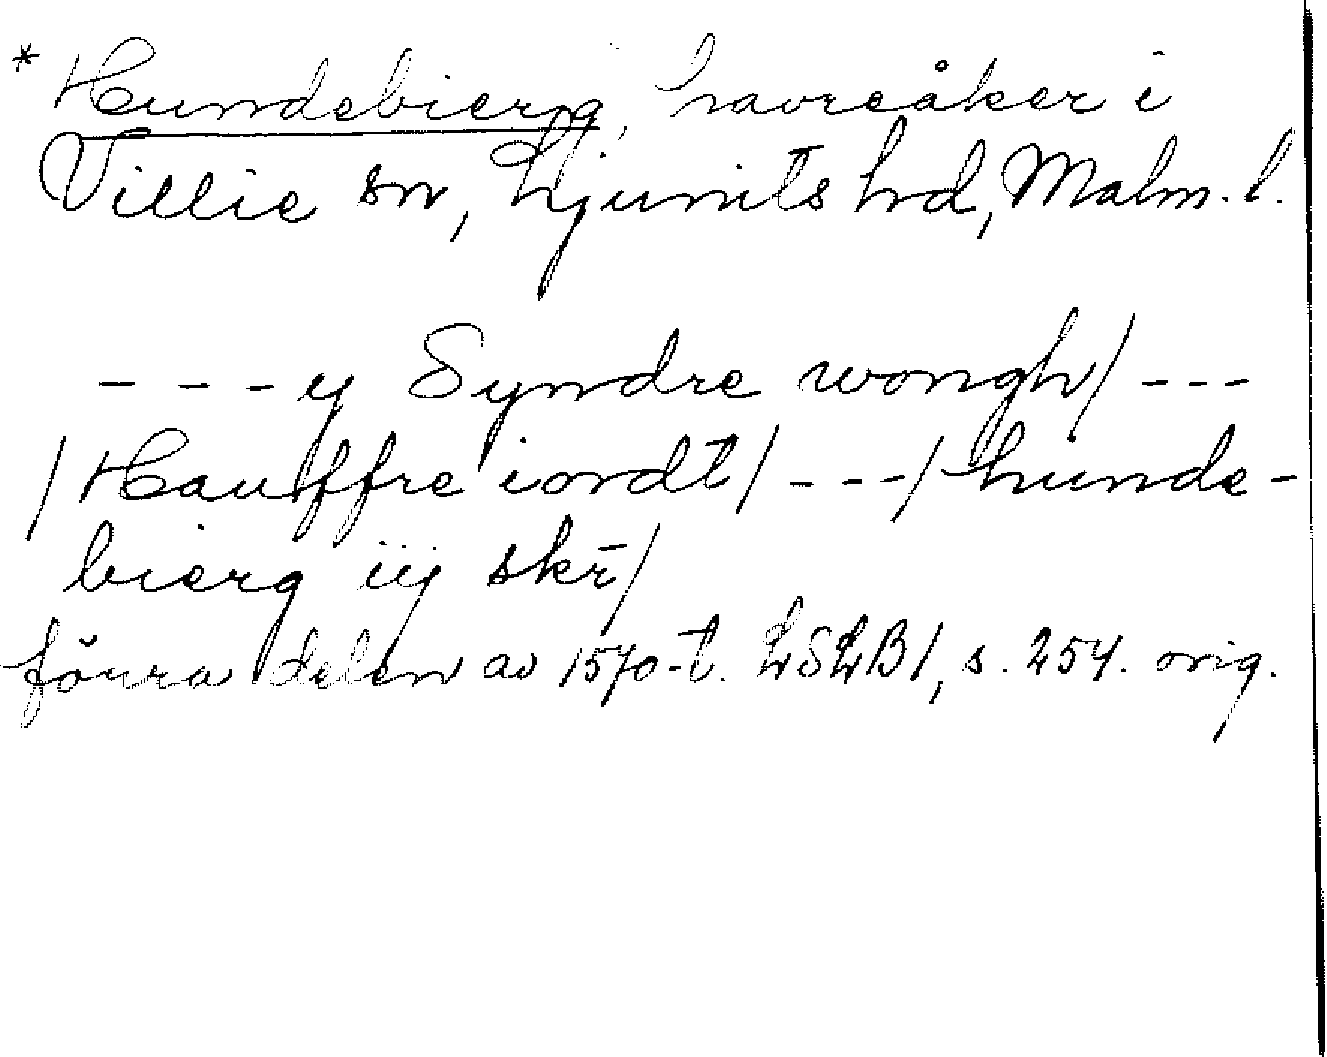 * Hundebierg, havreåker i
Villie sn, Ljunits hd, Malm. l.
- - - y Syndre wongh/ - - -
/ Hauffre iordt/ - - -/ hunde-
bierg iij skr̄/
förra delen av 1570-t. LSLB1, s. 254. orig.